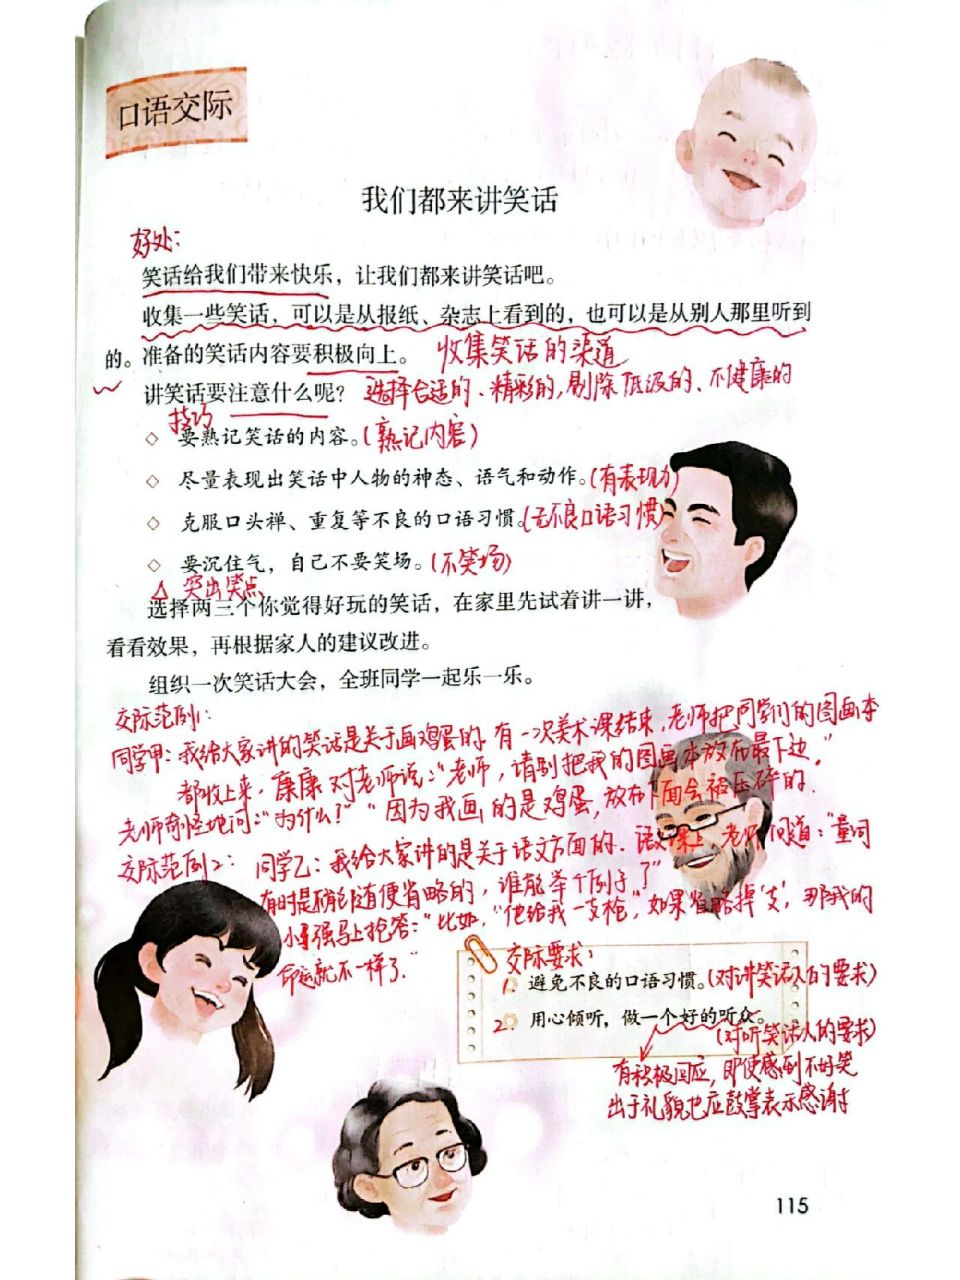 口语交际
我们都来讲笑话
好处：
笑话给我们带来快乐，让我们都来讲笑话吧。
收集一些笑话，可以是从报纸、杂志上看到的，也可以是从别人那里听到
的。准备的笑话内容要积极向上。 收集笑话的渠道
讲笑话要注意什么呢？ 选择合适的、精彩的，剔除低级的、不健康的
技巧
◇ 要熟记笑话的内容。（熟记内容）
◇ 尽量表现出笑话中人物的神态、语气和动作。（有表现力）
◇ 克服口头禅、重复等不良的口语习惯。（无不良口语习惯）
◇ 要沉住气，自己不要笑场。（不笑场）
△ 突出笑点
选择两三个你觉得好玩的笑话，在家里先试着讲一讲，
看看效果，再根据家人的建议改进。
组织一次笑话大会，全班同学一起乐一乐。
交际范例1：
同学甲：我给大家讲的笑话是关于画鸡蛋的。有一次美术课结束，老师把同学们的图画本
都收上来，康康对老师说：“老师，请别把我的图画本放在最下边。”
老师奇怪地问：“为什么？”“因为我画的是鸡蛋，放在下面会被压碎的。
交际范例2： 同学乙：我给大家讲的是关于语文方面的。语文课上，老师问道：“量词
有时是不能随便省略的，谁能举个例子？”
小强马上抢答：“比如，“他给我一支枪”，如果省略掉‘支’，那我的
命运就不一样了。”
交际要求：
1. 避免不良的口语习惯。（对讲笑话人的要求）
2. 用心倾听，做一个好的听众。
（对听笑话人的要求）
有积极回应，即使感到不好笑
出于礼貌也应鼓掌表示感谢
115